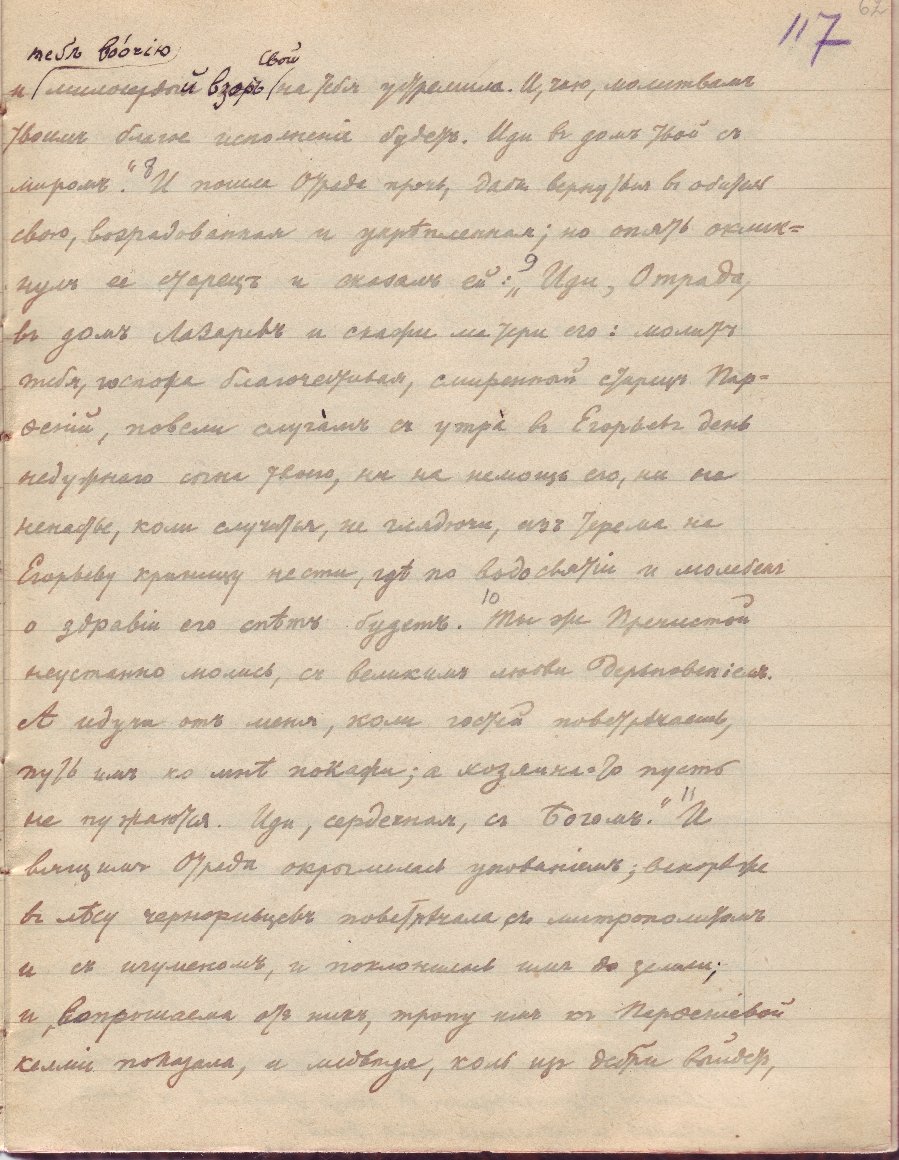 62
117
тебѣ воочiю
свой
и милосердый взоръ на тебя устремила. И, чаю, молитвамъ
твоимъ благое исполненiе будетъ. Иди въ домъ твой съ
миромъ." 8 И пошла Отрада прочь, дабы вернуться въ обитель
свою, возрадованная и укрѣпленная; но опять оклик=
нулъ ее старецъ и сказалъ ей: 9 „Иди, Отрада,
въ домъ Лазаревъ и скажи матери его: молитъ
тебя, госпожа благочестивая, смиренный старецъ Пар=
ѳенiй, повели слугамъ съ утра въ Егорьевъ день
недужнаго сына твоего, ни на немощь его, ни на
ненастье, коли случится, не глядючи, изъ терема на
Егорьеву криницу нести, гдѣ по водосвятiи и молебенъ
о здравiи его спѣтъ будетъ. 10 Ты же Пречистой
неустанно молись, съ великимъ любви дерзновенiемъ.
А идучи отъ меня, коли гостей повстрѣчаешь,
путь имъ ко мнѣ покажи; а хозяина-то пусть
не пужаются. Иди, сердечная, съ Богомъ." 11 И
вящшимъ Отрада окрылилась упованiемъ; вскорѣ же
въ лѣсу черноризцевъ повстрѣчала съ митрополитомъ
и съ игуменомъ, и поклонилась имъ до земли;
и, вопрошаема отъ нихъ, тропу имъ къ Парѳенiевой
келлiи показала, и медвѣдя, коль изъ дебри выйдетъ,